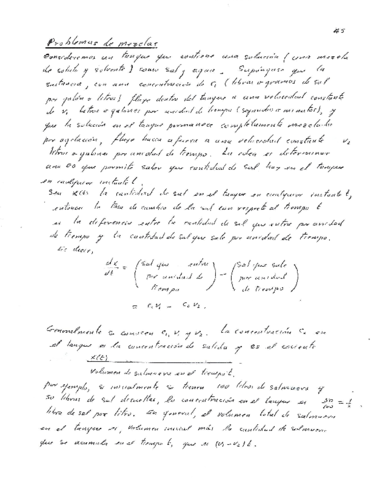 #5
Problemas de mezclas
Consideremos un tanque que contiene una solución (una mezcla
de soluto y solvente) como sal y agua. Supóngase que la
sustancia, con una concentración de c₁ (libras o gramos de sal
por galón o litros) fluye dentro del tanque a una velocidad constante
de v₁ litros o galones por unidad de tiempo (segundos o minutos), y
que la solución en el tanque permanece completamente mezclada
por agitación, fluye hacia afuera a una velocidad constante v₂
litros o galones por unidad de tiempo. La idea es determinar
una EO que permita saber que cantidad de sal hay en el tanque
en cualquier instante t.
Sea x(t) la cantidad de sal en el tanque en cualquier instante t,
entonces la tasa de cambio de la sal con respecto al tiempo t
es la diferencia entre la cantidad de sal que entra por unidad
de tiempo y la cantidad de sal que sale por unidad de tiempo.
Es decir,
dx/dt = (sal que entra por unidad de tiempo) − (sal que sale por unidad de tiempo)
= c₁v₁ − c₂v₂.
Generalmente se conocen c₁, v₁ y v₂. La concentración c₂ en
el tanque es la concentración de salida y es el cociente
x(t)
volumen de salmuera en el tiempo t.
Por ejemplo, si inicialmente se tienen 100 litros de salmuera y
50 libras de sal disueltas, la concentración en el tanque es 50/100 = 1/2
libra de sal por litro. En general, el volumen total de salmuera
en el tanque es, volumen inicial más la cantidad de salmuera
que se acumula en el tiempo t, que es (v₁ − v₂)t.